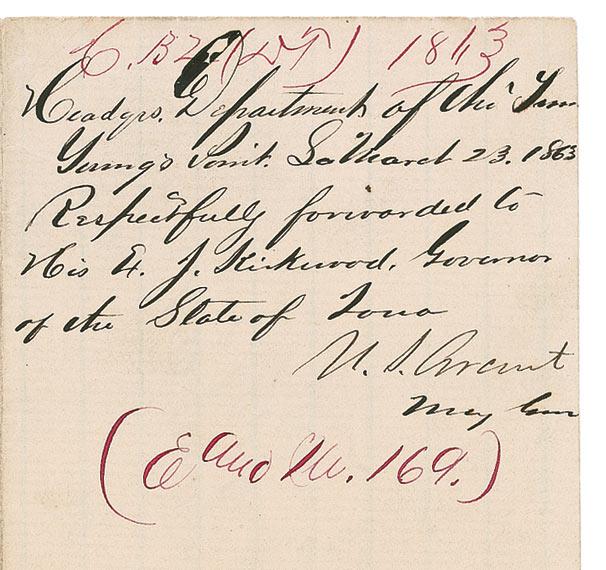 C. 82 (DT) 1863
Headqrs. Department of the Tenn
Young's Point. La March 23. 1863
Respectfully forwarded to
His E. J. Kirkwood. Governor
of the State of Iowa
U. S. Grant
Maj Gen
(E and M. 169.)